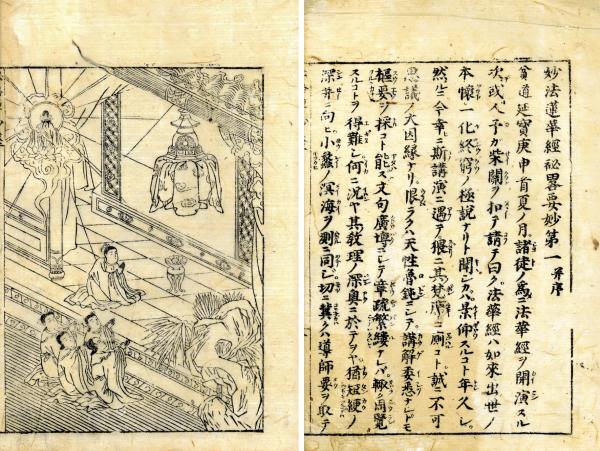 妙法蓮華經祕畧要妙第一并序
貧道延寶庚申首夏ノ月諸徒ノ爲ニ法華經ヲ開演スル
次或人予カ柴關ヲ扣テ請テ曰ク法華經ハ如來出世ノ
本懷一化終窮ノ極説ナリト聞シカバ景仰スルコト年久シ
然ニ今幸ニ斯講演ニ遇テ猥ニ其梵席ニ廁コト誠ニ不可
思議ノ大因縁ナリ恨ラクハ天性魯鈍ニシテ講解委悉ナレドモ
樞要ヲ採コト能ス文句廣博ニシテ章疏繁縷ナレバ輙ク周覽
スルコトヲ得難シ何ニ況ヤ其教理ノ深奧ニ於テヲヤ猶短綆ノ
深井ニ向ヒ小蠡ノ溟海ヲ測ニ同シ切ニ冀クハ導師要ヲ取テ